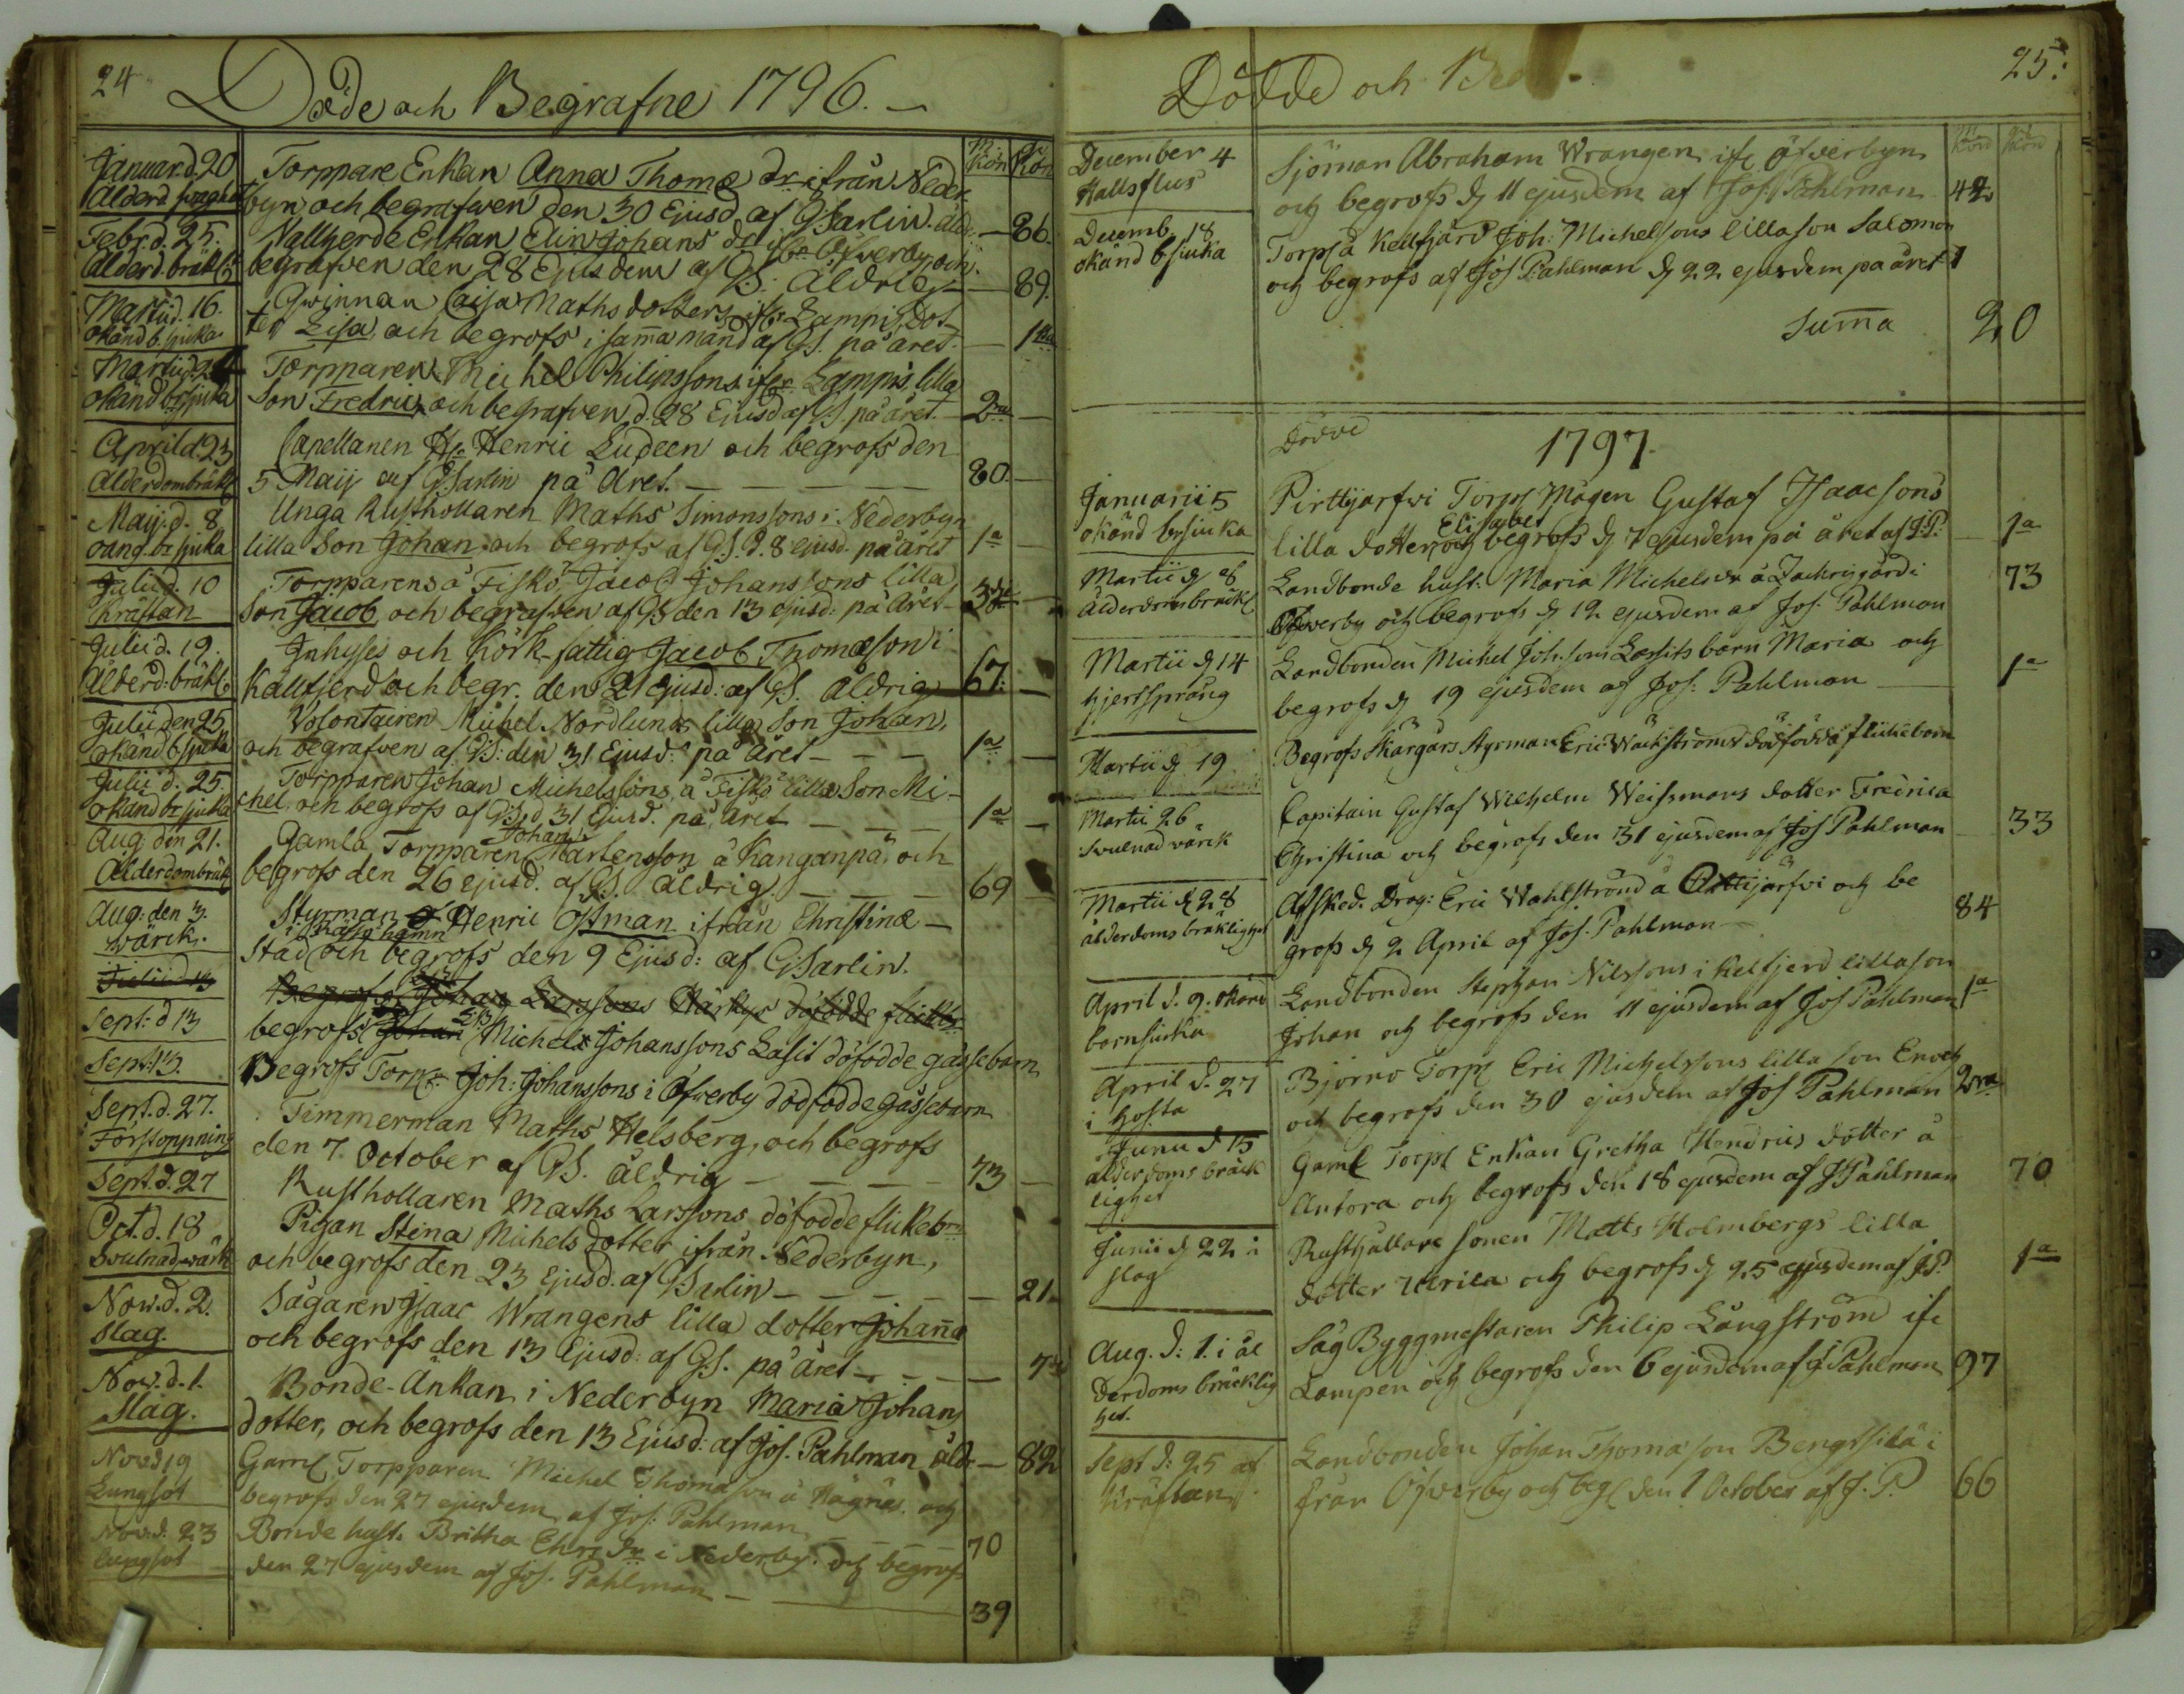 24
Döde och Begrafne 1796. —
M: Kön
Kön
Januar. d. 20
Torppare Enkan Anna Thomæ dr ifrån Neder-
Ålderd. swaghet
byn och begrafwen den 30 Ejusd. af GSarlin. åldr. — 86.
Febr. d. 25.
Vallherde Enkan Elin Johans dr ifr. Öfwerby, och
Ålderd. bräkl.
begrafwen den 28 Ejusdem af GS. Åldrig — 89.
Martii d. 16.
Qwinnan Caisa Mathsdotters ifr. Lampis, dot-
okänd b. sjuka
ter Lisa, och begrofs i samma månd af GS. på året. — 1ta
Martii d. 24
Torpparen Michel Philipssons ifr. Lampis, lilla
okänd br sjuka
Son Fredric, och begrafwen d. 28 Ejusd. af GS. på året. 2ra —
April d. 23
Capellanen Hr Henric Ludeen och begrofs den
Ålderdombräkl.
5 Maij af GSarlin på Året. — — — 80. —
Maij. d. 8
Unga Rusthollaren Maths Simonssons i Nederbyn
oang. br sjuka
lilla Son Johan, och begrofs af GS. d. 8 ejusd. på året 1a —
Julii d. 10
Torpparens å Fiskö, Jacob Johanssons lilla
Kräftan
Son Jacob, och begrafwen af GS den 13 ejusd: på Året —
Julii d. 19.
Inhyses och Körk-fattig Jacob Thomæson i
Ålderd: bräkl.
Kallfjerd och begr. den 21 Ejusd: af GS. åldrig 67. —
Julii den 25
Volontairen Michel Nordlunds lilla Son Johan,
okänd b. sjuka
och begrafwen af GS: den 31 Ejusd: på året — — 1a —
Julii d. 25.
Torpparen Johan Michelssons å Fiskö lilla Son Mi-
okänd br sjuka
chel, och begrofs af GS. d. 31 Ejusd. på året — — 1a —
Aug. den 21.
Gamla Torpparen Johan Mårtensson å Kanganpä, och
Ålderdombräkl
begrofs den 26 ejusd. af GS. åldrig. — — 69 —
Aug: den 3.
Styrman Henric Östman ifrån Christinæ —
wärck.
i Räfsö hamn
Stad och begrofs den 9 Ejusd: af GSarlin.
Julii d 13
Begrofs Johan Larssons döfödde flickbr
Sept: d 13
begrofs Johan Michels Johanssons Lasis döfödde gåssebarn
Sept: 13.
Begrofs Torp: Joh: Johanssons i Öfwerby dödfödde gåssebarn
Sept. d. 27.
Timmerman Maths Helsberg, och begrofs
Förstoppning
den 7. October af GS. åldrig — — — 73 —
Sept. d. 27
Rusthollaren Maths Larssons döfödde flickebrn
Oct. d. 18
Pigan Stina Michels dotter ifrån Nederbyn,
Svulnad-wärk
och begrofs den 23 Ejusd. af GSarlin — — — 21.
Nov. d. 2.
Sågaren Isaac Wrangens lilla dotter Johanna
Slag.
och begrofs den 13 Ejusd: af GS. på året — — —
Nov. d. 1.
Bonde-Änkan i Nederbyn Maria Johans
Slag.
dotter, och begrofs den 13 Ejusd: af Jos. Pahlman åldr — 82
Nov d 19
Gaml Torpparen Michel Thomason å Hagnäs och
Lungsot
begrofs den 27 ejusdem af Jos: Pahlman — — 70
Nov. d. 23
Bonde hust. Britha Ehrs dr i Nederby. och begrofs
lungsot
den 27 ejusdem af Jos. Pahlman — — 39
25.
Dödde och Be
Kön
Kön
December 4
Sjöman Abraham Wrangen ifr öfverbyn
Hallsflus
och begrofs d 11 ejusdem af Jos. Pahlman 42
Decemb. 18
Torps å Kellfjärd Joh: Michelsons lilla son Salomon
okänd b sjuka
och begrofs af Jos Pahlman d 22 ejusdem på året 1
Summa 20
Dödde
1797.
Januarii 5
Pirttijärfwi Torps Mågen Gustaf Isaacsons
okänd br sjuka
lilla dotter Elisabet och begrofs d 7 ejusdem på året af J:P: — 1a
Martii d 8
Landbonde hust. Maria Michels dr å Zachrisgård i 73
ålderdoms bräckl
Öfwerby och begrofs d 12 ejusdem af Jos. Pahlman
Martii d 14
Landbonden Michel Joh:sons Lassits barn Maria och
hjertsprång
begrofs d 19 ejusdem af Jos: Pahlman — 1a
Martii d 19
Begrofs Skärgårs styrman Eric Wäckströms dödföddå flickebarn
Martii 26
Capitain Gustaf Wilhelm Weissmans dotter Fredrica
Svulnad värck
Christina och begrofs den 31 ejusdem af Jos Pahlman — 33
Martii d 28
Afsked. Drag: Eric Wahlström å Ottijärfvi och be
ålderdoms bräklighet
grofs d 2 April af Jos. Pahlman — 84
April d. 9. okänd
Landbonden Stephan Nilssons i Kelfjerd lilla son
barnsjuka
Johan och begrofs den 11 ejusdem af Jos Pahlman 1a
April d. 27
Björnö Torp Eric Michelssons lilla son Enoch
i hosta
och begrofs den 30 ejusdem af Jos Pahlman 2ra
Junii d 15
Gaml Torp Enkan Gretha Hendrics dotter å
ålderdoms bräck
lighet
Antora och begrofs den 18 ejusdem af J Pahlman 70
Junii d 22 i
Rusthållare sonen Matts Holmbergs lilla
slag
dotter Ulrica och begrofs d 25 ejusdem af J.P. 1a
Aug. d: 1. i ål
Såg Byggmestaren Philip Långström ifr
derdoms bräcklig
het.
Lampen och begrofs den 6 ejusdem af J Pahlman 97
Sept d: 25 af
Landbonden Johan Thomason Bengtsilä i
Kräftan
från Öfverby och begr den 1 October af J. P. 66